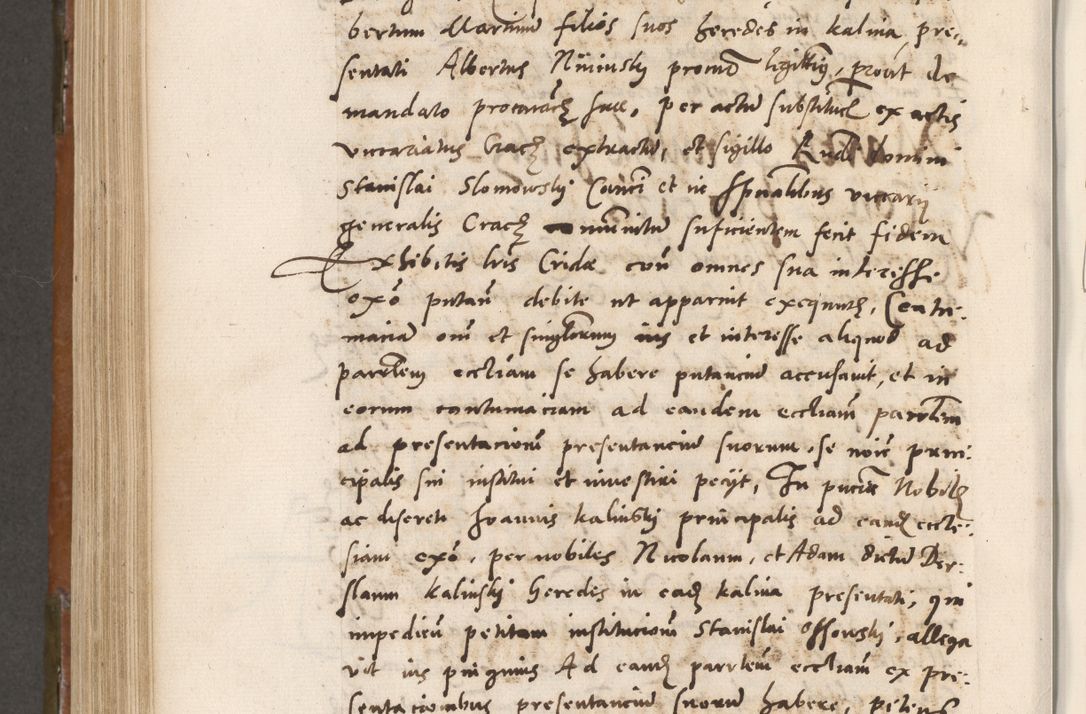 bertum Martinum filios suos heredes in Kalina, pre-
sentati Albertus Niniuski procur legittimus, prout de
mandato procuratoris suae, per actum substitut ex actis
vicariatus Crac extracto, et sigillo Rndi domini
Stanislai Slomowskj Canci et in spiritualibus vicarij
generalis Crac munitum suficientem fecit fidem
Exhibitis lris Cridae cum omnes sua interesse
exo putan debite ut apparuit exequut, Contu-
maciam om et singulorum ius et interesse aliquod ad
parrlem eccliam se habere putancium accusauit, et in
eorum contumaciam ad eandem eccliam parrlem
ad presentacionem presentancium suorum, se noie prin-
cipalis sui institui et inuestiri pecijt, In
ac discreti Joannis Kalinski principalis ad eand eccle-
siam exo, per nobiles Nicolaum, et Adam dictum Der-
slaum Kalinskj heredes in ead Kalina presentati, qui
impedien petitam institucionem Stanislai Ossowskj, allega
vit ius pinguius Ad eand parrlem eccliam ex pre-
sentacionibus presentancium suorum habere, petens